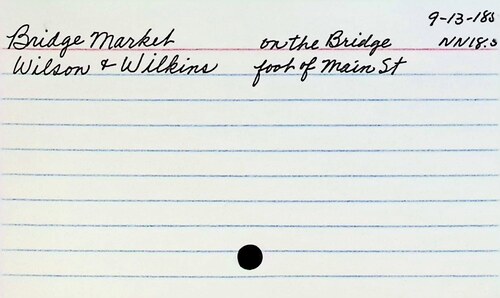 9-13-18
Bridge Market on the Bridge NN18:3
Wilson & Wilkins foot of Main St